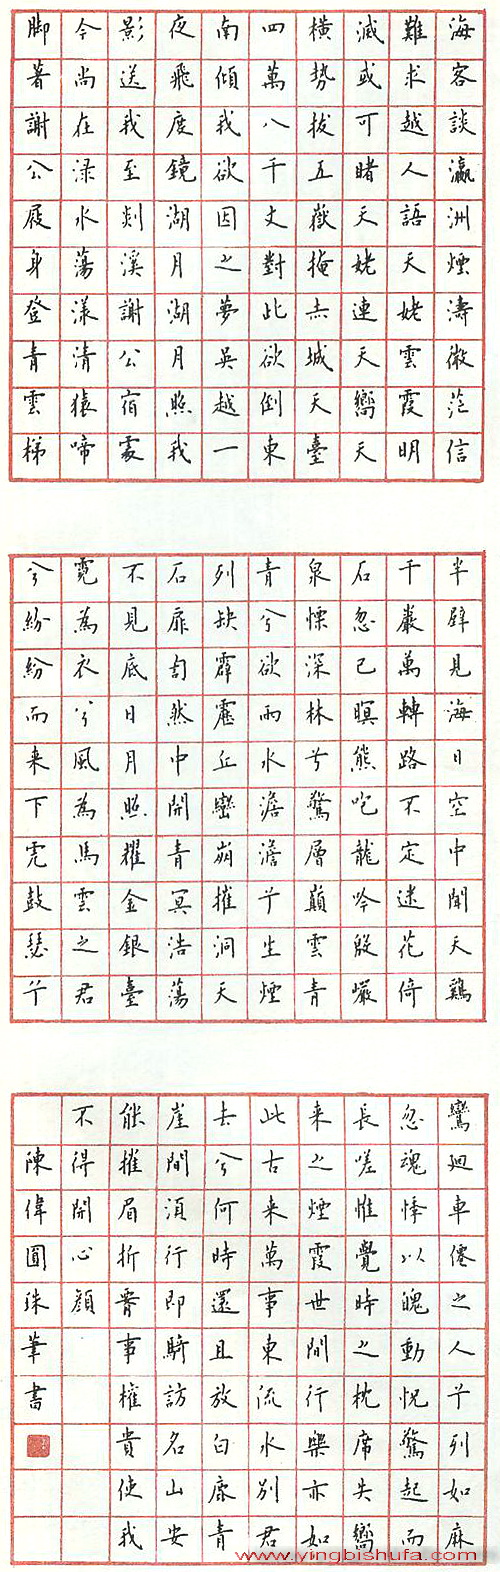 海客談瀛洲煙濤微茫信
難求越人語天姥雲霞明
滅或可睹天姥連天嚮天
橫勢拔五嶽掩赤城天臺
四萬八千丈對此欲倒東
南傾我欲因之夢吳越一
夜飛度鏡湖月湖月照我
影送我至剡溪謝公宿處
今尚在淥水蕩漾清猿啼
腳著謝公屐身登青雲梯
半壁見海日空中聞天鷄
千巖萬轉路不定迷花倚
石忽已暝熊咆龍吟殷巖
泉慄深林兮驚層巔雲青
青兮欲雨水澹澹兮生煙
列缺霹靂丘巒崩摧洞天
石扉訇然中開青冥浩蕩
不見底日月照耀金銀臺
霓為衣兮風為馬雲之君
兮紛紛而来下虎鼓瑟兮
鸞迴車僊之人兮列如麻
忽魂悸以魄動怳驚起而
長嗟惟覺時之枕席失嚮
来之煙霞世間行樂亦如
此古来萬事東流水別君
去兮何時還且放白鹿青
崖間須行即騎訪名山安
能摧眉折腰事權貴使我
不得開心顏
陳偉圓珠筆書
www.yingbishufa.com